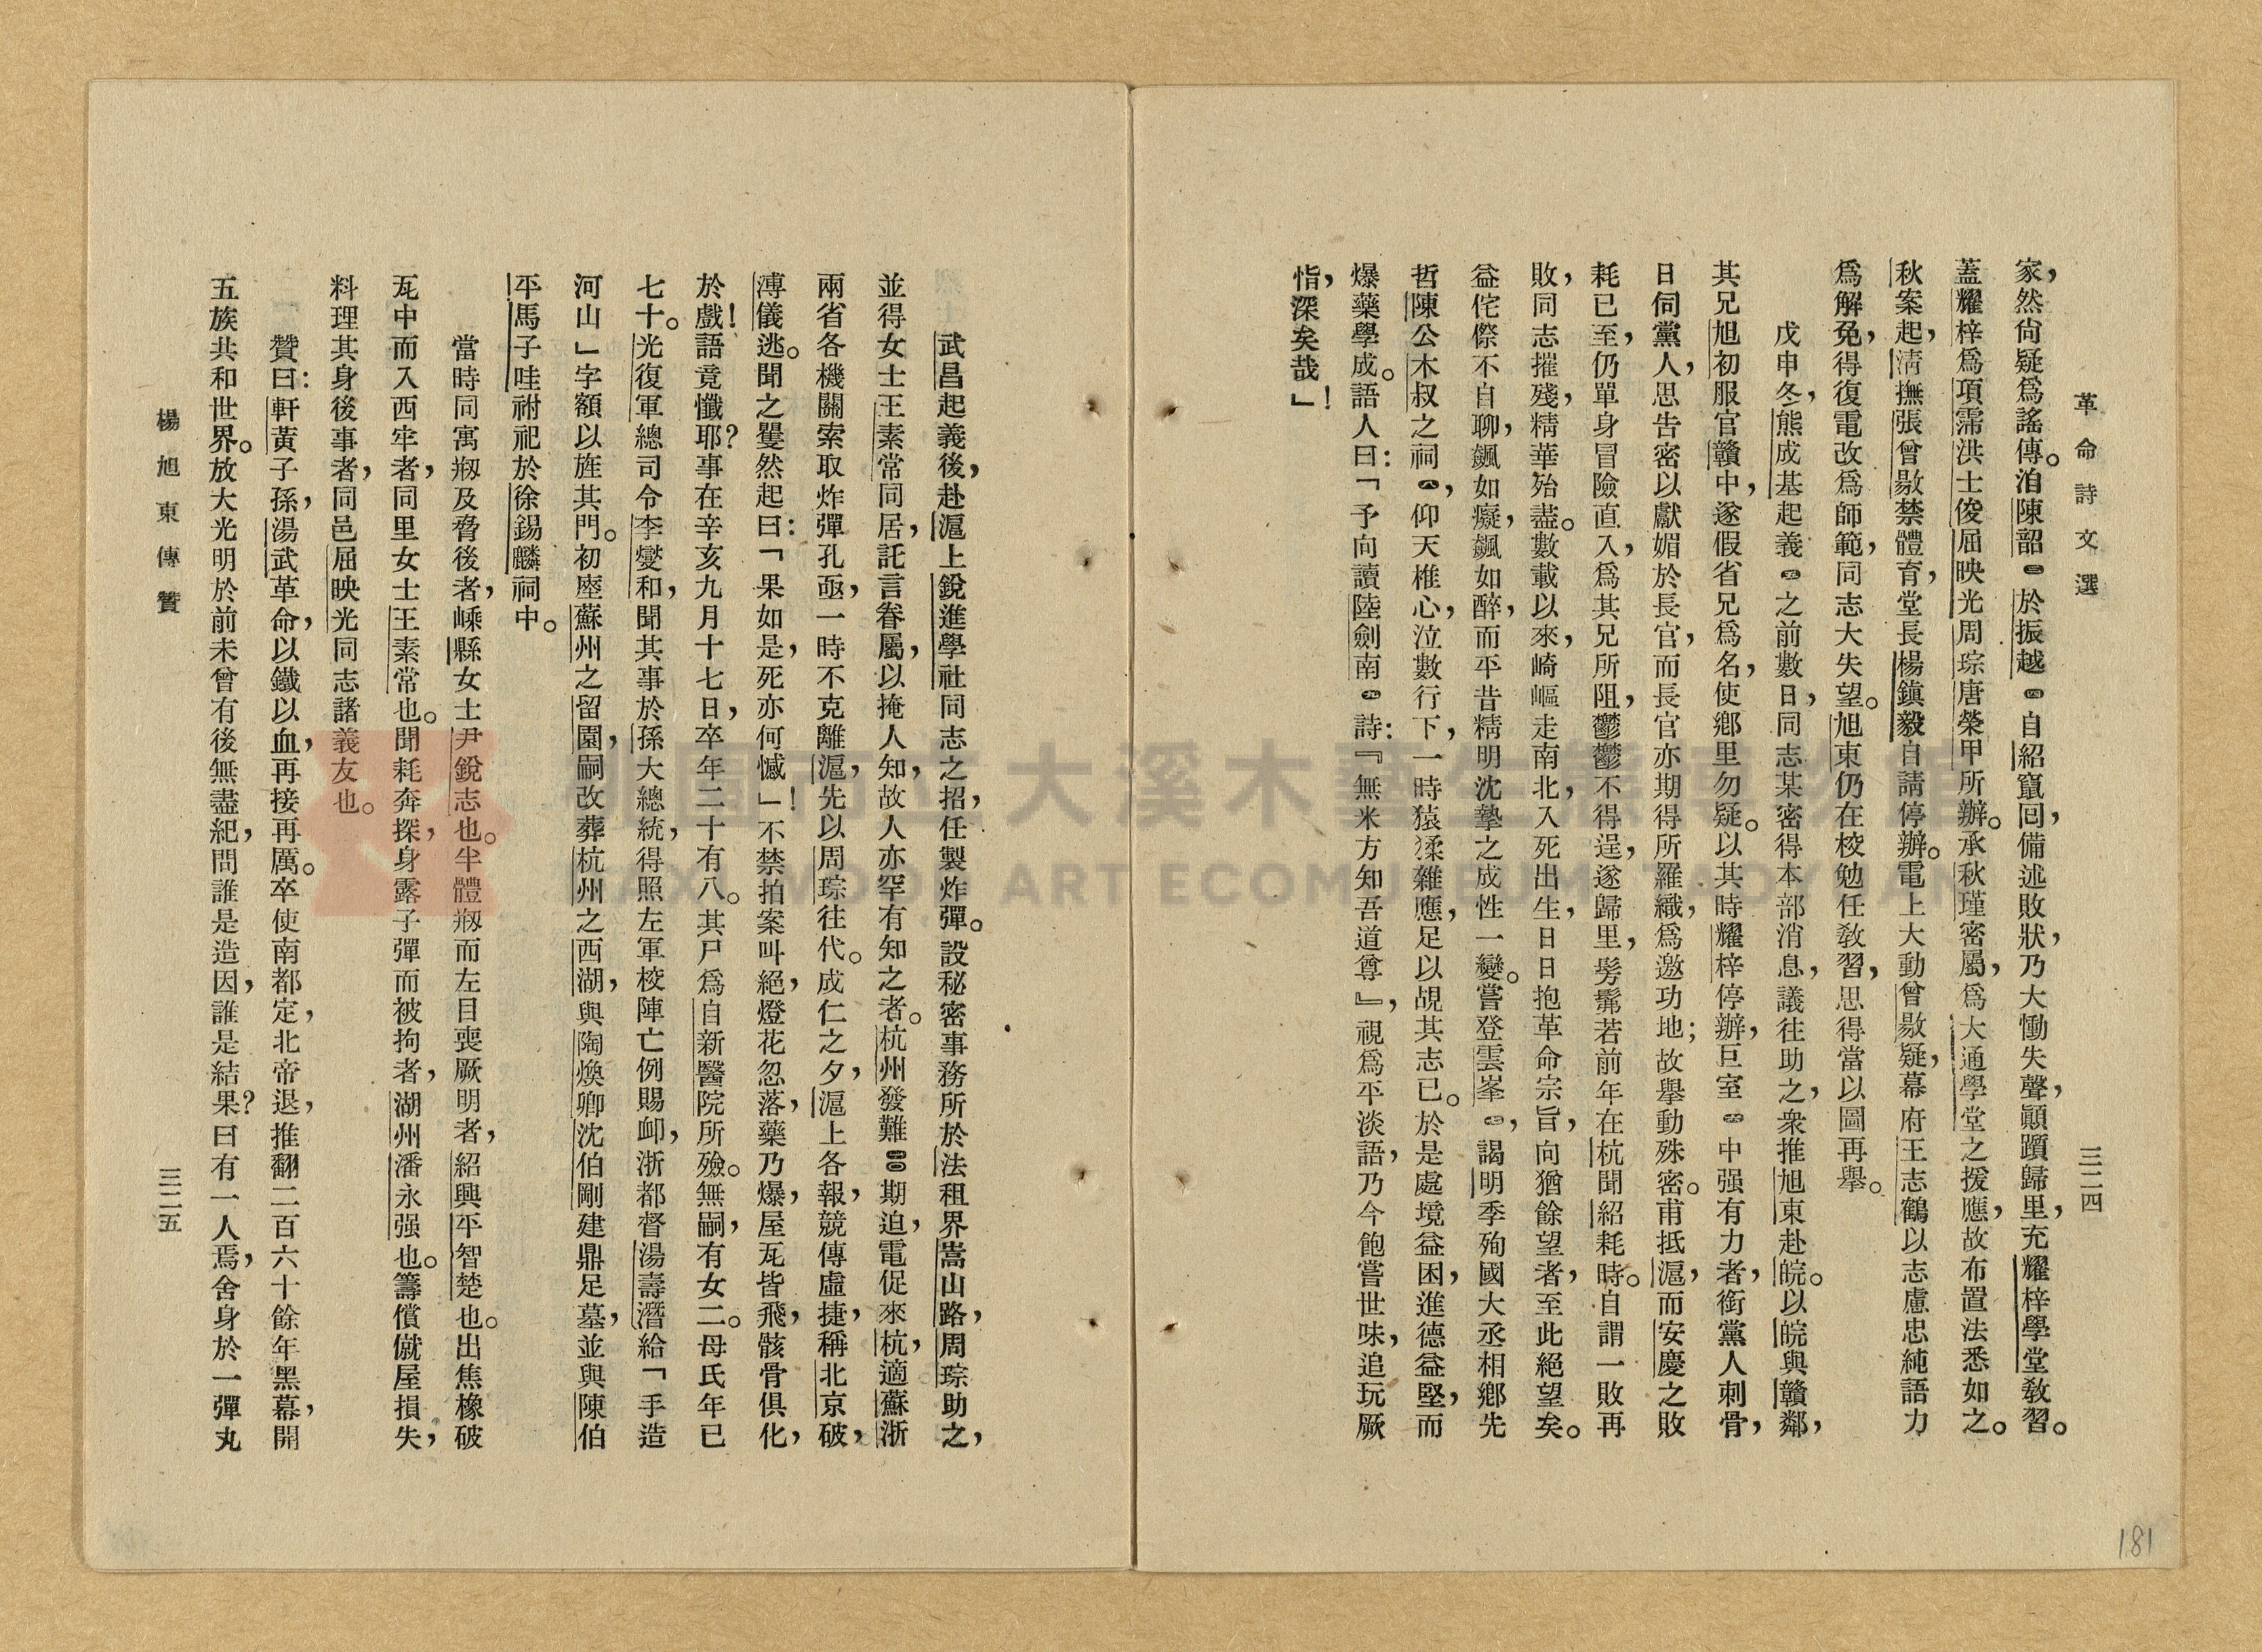 革命詩文選
三二四
家，然尙疑爲謠傳。洎陳韶㊂於振越㊃自紹竄回，備述敗狀，乃大慟失聲，顚躓歸里，充耀梓學堂敎習。
蓋耀梓爲項霈洪士俊屈映光周琮唐榮甲所辦。承秋瑾密屬，爲大通學堂之援應，故布置法悉如之。
秋案起，淸撫張曾敭禁體育，堂長楊鎭毅自請停辦。電上大動曾敭疑，幕府王志鶴以志慮忠純語力
爲解免，得復電改爲師範，同志大失望。旭東仍在校勉任敎習，思得當以圖再舉。
戊申冬，熊成基起義㊄之前數日，同志某密得本部消息，議往助之，衆推旭東赴皖。以皖與贛鄰，
其兄旭初服官贛中，遂假省兄爲名，使鄕里勿疑。以其時耀梓停辦，巨室㊅中强有力者，銜黨人刺骨，
日伺黨人，思告密以獻媚於長官，而長官亦期得所羅織，爲邀功地；故舉動殊密。甫抵滬，而安慶之敗
耗已至，仍單身冒險直入，爲其兄所阻，鬱鬱不得逞，遂歸里，髣髴若前年在杭聞紹耗時。自謂一敗再
敗，同志摧殘，精華殆盡。數載以來，崎嶇走南北，入死出生，日日抱革命宗旨，向猶餘望者，至此絕望矣。
益侘傺不自聊，飄如癡，飄如醉，而平昔精明沈摯之成性一變。嘗登雲峯㊆，謁明季殉國大丞相鄕先
哲陳公木叔之祠㊇，仰天椎心，泣數行下，一時猿猱雜應，足以覘其志已。於是處境益困，進德益堅，而
爆藥學成。語人曰：「予向讀陸劍南㊈詩：『無米方知吾道尊』，視爲平淡語，乃今飽嘗世味，追玩厥
恉，深矣哉」！
武昌起義後，赴滬上銳進學社同志之招，任製炸彈。設秘密事務所於法租界嵩山路，周琮助之，
並得女士王素常同居，託言眷屬，以掩人知，故人亦罕有知之者。杭州發難㊉期迫，電促來杭，適蘇浙
兩省各機關索取炸彈孔亟，一時不克離滬，先以周琮往代。成仁之夕，滬上各報，競傳虛捷，稱北京破，
溥儀逃。聞之蹷然起曰：「果如是，死亦何憾」！不禁拍案叫絕，燈花忽落，藥乃爆，屋瓦皆飛，骸骨俱化，
於戲！語竟懺耶？事在辛亥九月十七日，卒年二十有八。其尸爲自新醫院所殮。無嗣，有女二。母氏年已
七十。光復軍總司令李燮和，聞其事於孫大總統，得照左軍校陣亡例賜卹，浙都督湯壽潛給「手造
河山」字額以旌其門。初塟蘇州之留園，嗣改葬杭州之西湖，與陶煥卿沈伯剛建鼎足墓，並與陳伯
平馬子哇祔祀於徐錫麟祠中。
當時同寓剏及脅後者，嵊縣女士尹銳志也。半體剏而左目喪厥明者，紹興平智楚也。出焦橡破
瓦中而入西牢者，同里女士王素常也。聞耗奔探，身露子彈而被拘者，湖州潘永强也。籌償僦屋損失，
料理其身後事者，同邑屈映光同志諸義友也。
贊曰：軒黃子孫，湯武革命，以鐵以血，再接再厲。卒使南都定，北帝退，推翻二百六十餘年黑幕，開
五族共和世界。放大光明於前未曾有後無盡紀，問誰是造因，誰是結果？曰有一人焉，舍身於一彈丸
楊旭東傳贊
三二五
181
桃園市立大溪木藝生態博物館
DAXI WOOD ART ECOMUSEUM, TAOYUAN